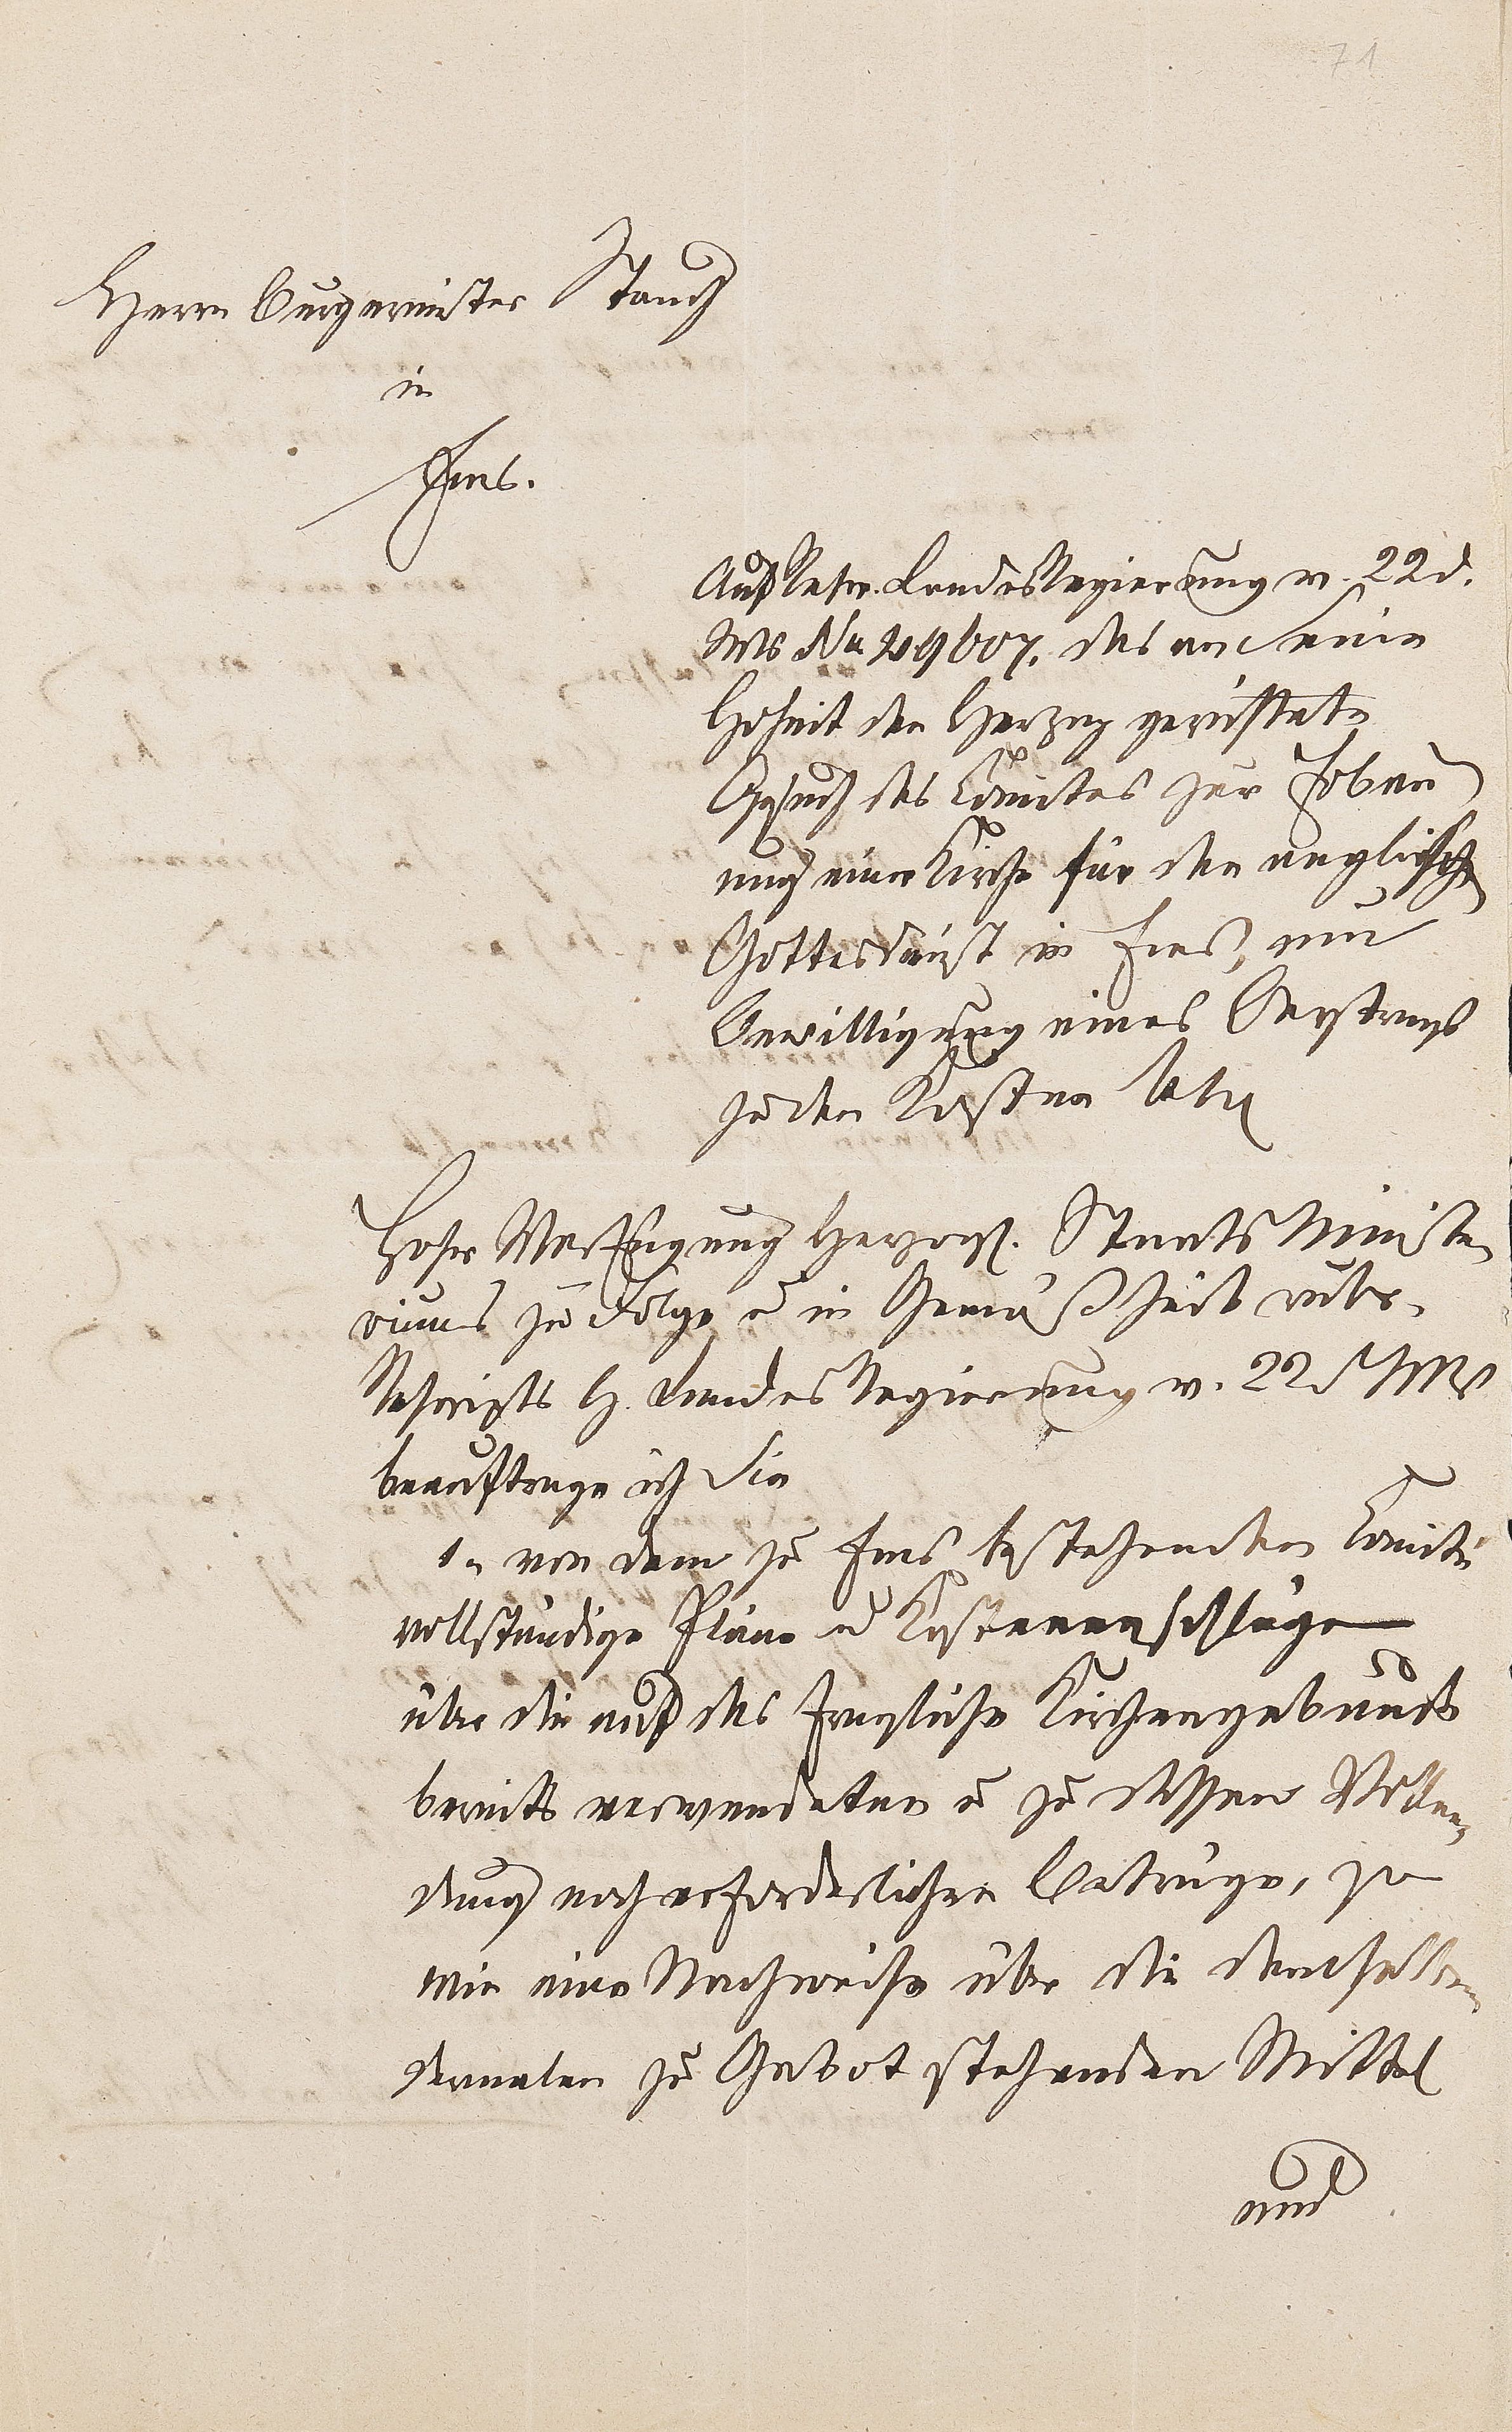 71
Herrn Burgermeister Stauch
in
Ems.
Auf Rescr. Landes Regierung v. 22 d.
Mts No 29607. das an Seine
Hoheit den Herzog gerichtete
Gesuch des Comites zur Erbau
ung einer Kirche für den englischen
Gottesdienst in Ems, um
Bewilligung eines Beytrags
zu den Kosten betr
Hoher Verfügung Herzogl. Staats Ministe
riums zu Folge u in Gemäßheit rubr.
Rescripts H. Landes Regierung v. 22 d Mts
beauftrage ich Sie
1., von dem zu Ems bestehenden Comité
vollständige Pläne u Kostenanschläge
über die auf das fragliche Kirchengebäude
bereits verwendeten u zu dessen Vollen,
dung noch erforderlichen Beträge, so
wie eine Nachweise über die demselben
dermalen zu Gebot stehenden Mittel
und